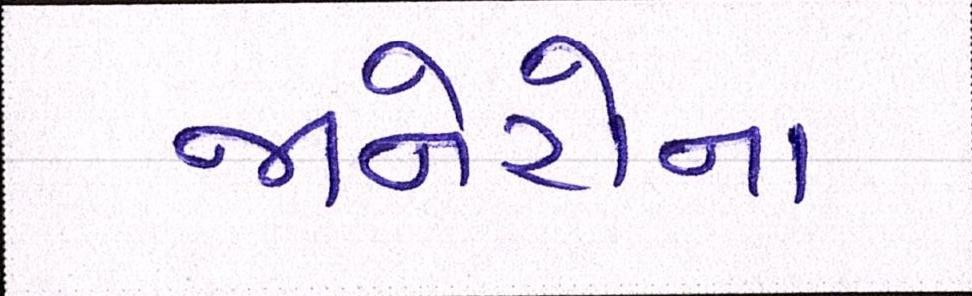 જાનેરોના